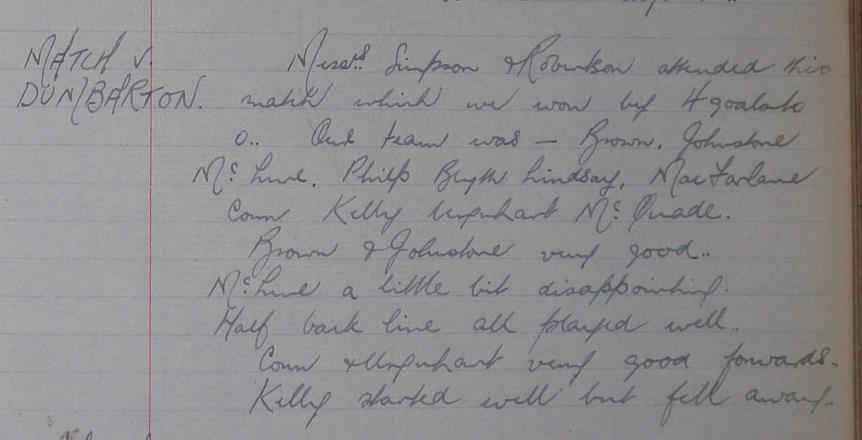 MATCH v. Messrs. Simpson & Robertson attended this
DUMBARTON. match which we won by 4 goals to
0.. Our team was — Brown, Johnstone
McLure, Philp Blyth Lindsay, MacFarlane
Conn Kelly Urquhart McQuade.
Brown & Johnstone very good..
McLure a little bit disappointing.
Half back line all played well..
Conn & Urquhart very good forwards.
Kelly started well but fell away.